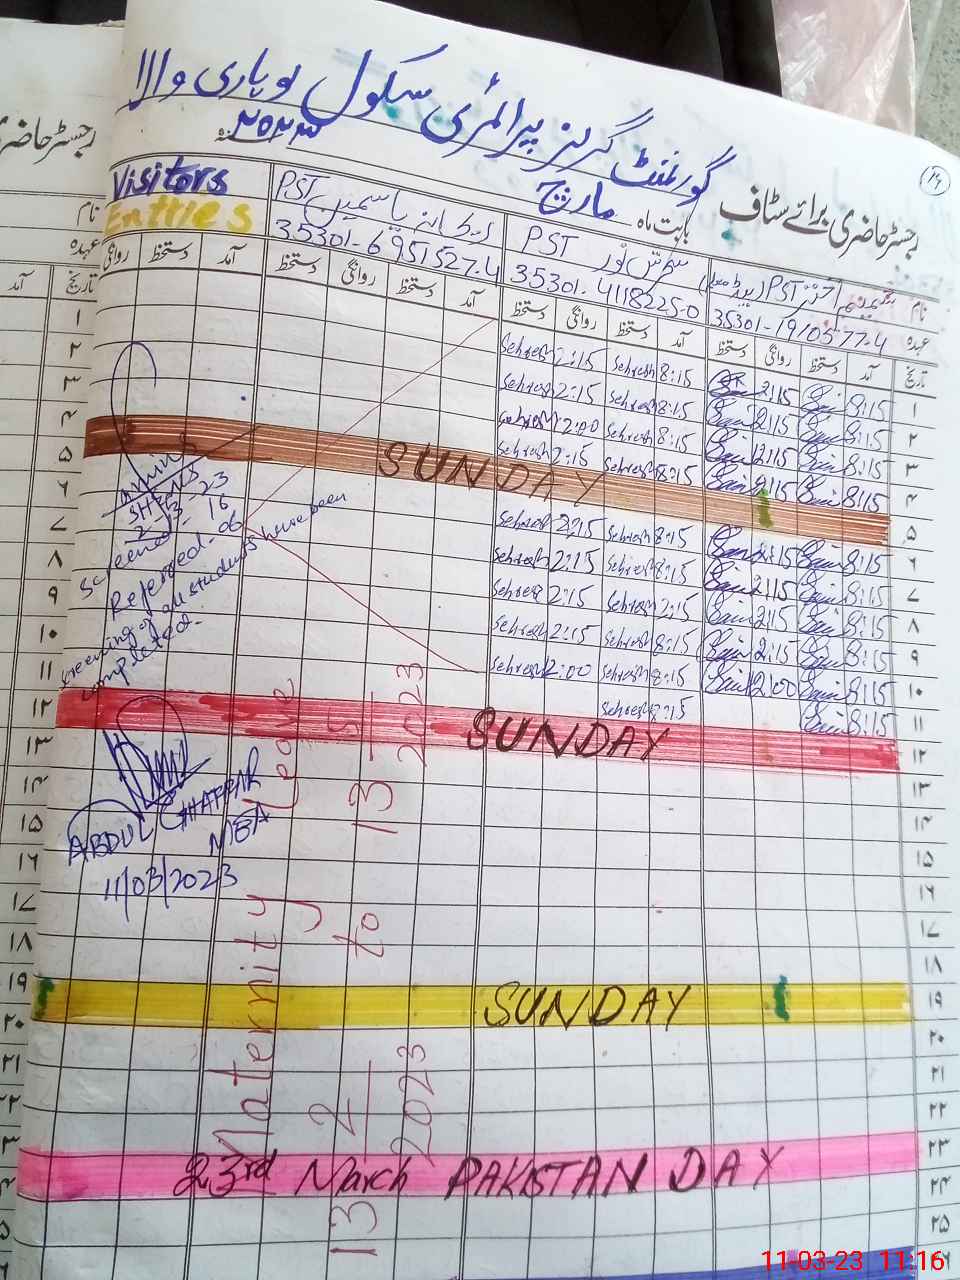 گورنمنٹ گرلز پرائمری سکول لوہاری والا
رجسٹر حاضری برائے سٹاف بابت ماہ مارچ ۲۰۲۳
رجسٹر حاضری
Visitors
Entries
PST
35301-6951527-4
PST
35301-4118225-0
PST
35301-1910577-4
نام
عہدہ
تاریخ
آمد دستخط روانگی دستخط
آمد دستخط روانگی دستخط
آمد دستخط روانگی دستخط
آمد دستخط روانگی
نام
عہدہ
تاریخ
آمد
۱ 8:15 2:15 Sehresh 8:15 Sehresh 2:15
۲ 8:15 2:15 Sehresh 8:15 Sehresh 2:15
۳ 8:15 12:15 Sehresh 8:15 Sehresh 12:00
۴ 8:15 2:15 Sehresh 8:15 Sehresh 2:15
۵ SUNDAY
۶ 8:15 2:15 Sehresh 8:15 Sehresh 2:15
۷ 8:15 2:15 Sehresh 8:15 Sehresh 2:15
۸ 8:15 2:15 Sehresh 2:15 Sehresh 2:15
۹ 8:15 2:15 Sehresh 8:15 Sehresh 2:15
۱۰ 8:15 12:00 Sehresh 8:15 Sehresh 12:00
۱۱ 8:15 Sehresh 8:15
۱۲ SUNDAY
۱۳
۱۴
۱۵
۱۶
۱۷
۱۸
۱۹ SUNDAY
۲۰
۲۱
۲۲
۲۳ 23rd March PAKISTAN DAY
۲۴
۲۵
SH&NS
2-3-23
Screened-16
Referred-06
Screening of all students have been
completed.
ABDUL GHAFFAR
MEA
11/03/2023
Maternity Leave
13/2/2023 to 13/5/2023
11-03-23 11:16